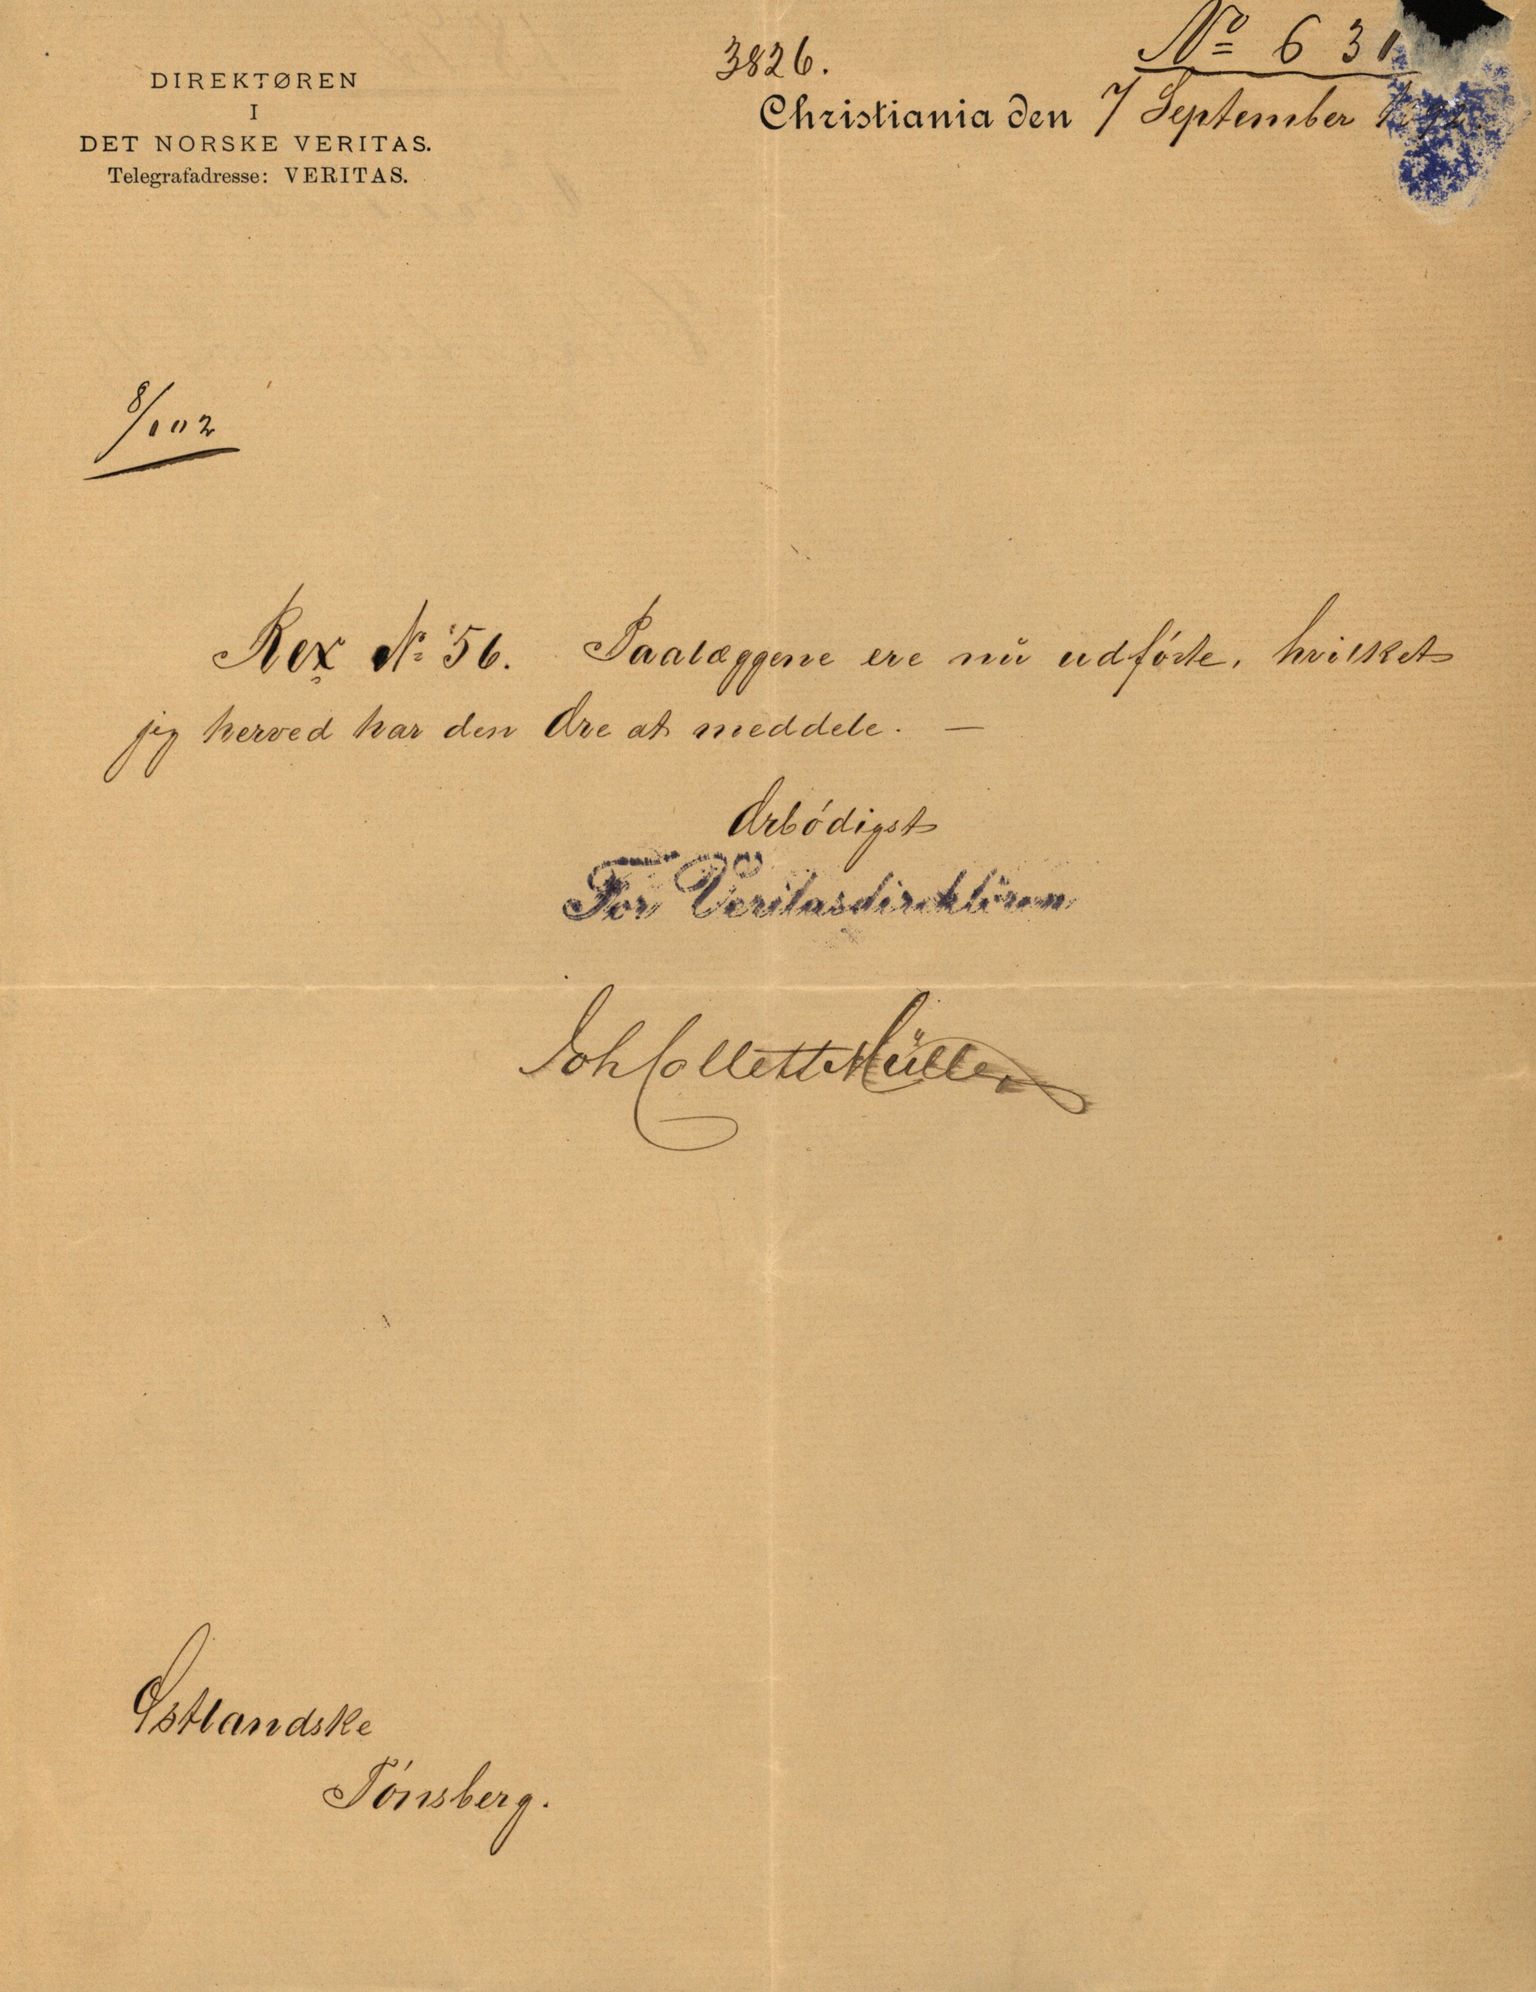 3826.
No 630
DIREKTØREN
I
DET NORSKE VERITAS.
Telegrafadresse: VERITAS.
Christiania den 7 September 1892.
8/002
Rex No 56. Paalæggene ere nu udförte, hvilket
jeg herved har den Ære at meddele. —
Ærbödigst
For Veritasdirektören
Joh Collett Müller
Østlandske
Tönsberg.